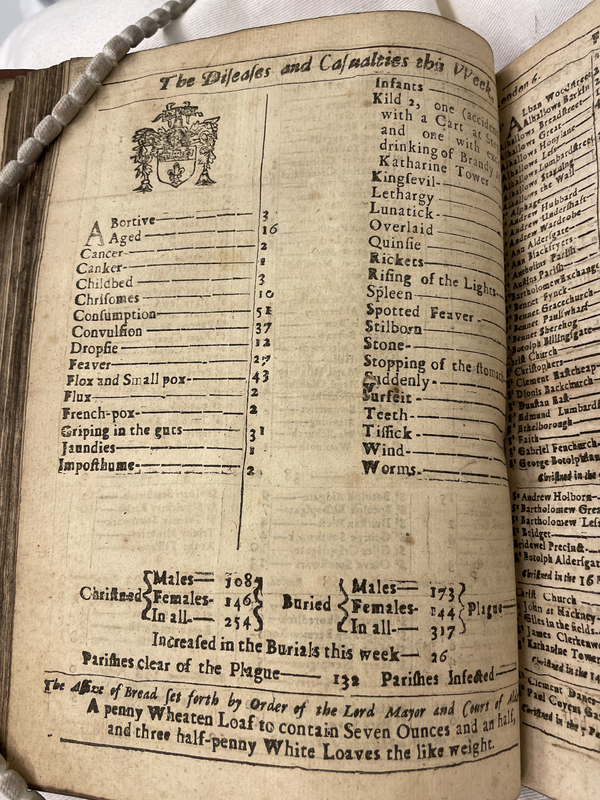 The Diſeaſes and Caſualties this VVeek
Abortive 3
Aged 16
Cancer 2
Canker
Childbed 3
Chriſomes 10
Conſumption 51
Convulſion 37
Dropſie 12
Feaver 27
Flox and Small pox 43
Flux 2
French-pox 2
Griping in the guts 31
Jaundies 1
Impoſthume 2
Infants
Kild 2, one (acciden
with a Cart at
and one with
drinking of Brandy
Katharine Tower
Kingſevil
Lethargy
Lunatick
Overlaid
Quinſie
Rickets
Riſing of the Lights
Spleen
Spotted Feaver
Stilborn
Stone
Stopping of the ſtomac
Suddenly
Surfeit
Teeth
Tiſſick
Wind
Worms
Chriſtned
Males 108
Females 146
In all 254
Buried
Males 173
Females 144
In all 317
Plague
Increaſed in the Burials this week 26
Pariſhes clear of the Plague 132 Pariſhes Infected
The Aſſize of Bread ſet forth by Order of the Lord Mayor and Court of
A penny Wheaten Loaf to contain Seven Ounces and an half,
and three half-penny White Loaves the like weight.
ondon 6.
Alban Woodſtreet
Alhallows Barkin
lhallows Breadſtreet
lhallows Great
lhallows Honylane
lhallows Leſs
lhallows Lombardſtreet
lhallows Staining
lhallows the Wall
Alphage
Andrew Hubbard
Andrew Underſhaft
Andrew Wardrobe
Ann Alderſgate
Ann Blackfryers
Antholins Pariſh
Auſtins Pariſh
Bartholomew Exchange
Bennet Fynck
Bennet Gracechurch
Bennet Paulſwharf
Bennet Sherehog
Botolph Billingſgate
riſt Church
Chriſtophers
Clement Eaſtcheap
Dionis Backchurch
Dunſtan Eaſt
Edmund Lumbard
Ethelborough
Faith
Gabriel Fenchurch
George Botolphlan
Chriſtned in the
Andrew Holborn
Bartholomew Grea
Bartholomew Leſs
Bridget
Bridewel Precinct
Botolph Alderſgat
Chriſtned in the 16
hriſt Church
John at Hackney
Giles in the fields
James Clerkenwe
Katharine Tower
Chriſtned in the
Clement Danes
Paul Covent Ga
Chriſtned in the 5